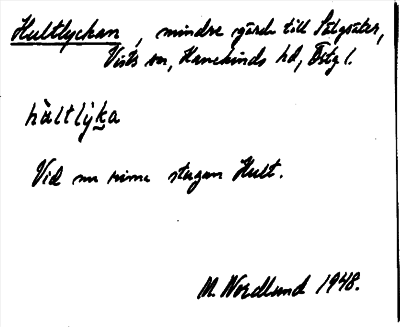 Hultlyckan, mindre gärde till Sälgsäter,
Vists sn, Hanekinds hd, Östg l.
hàltlỳka
Vid nu rivna stugan Hult.
M. Nordlund 1948.